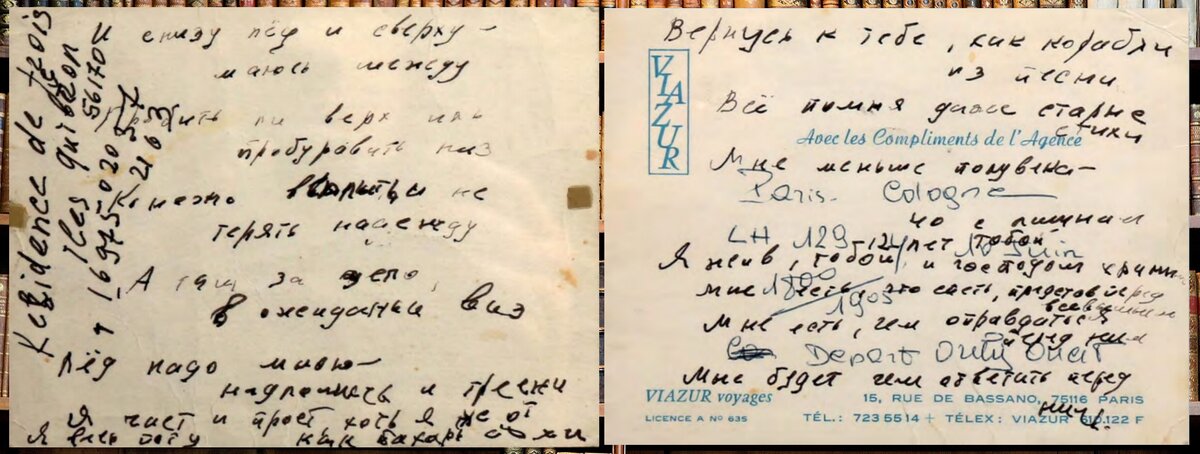 Residence de
Iles quiberon
56170
И снизу лёд и сверху –
маюсь между
Пробить ли верх иль
пробуравить низ
Конечно всплыть и не
терять надежду
А там за дело,
в ожиданьи виз
Лёд надо мною –
надломись и тресни
Я чист и прост хоть я не от
Я весь поту как пахарь сохи
Вернусь к тебе, как корабли
из песни
Всё помня даже старые
стихи
VIAZUR
Avec les Compliments de l'Agence
Мне меньше полувека –
Paris - Cologne
с лишним
LH 129
Я жив, тобой и господом храним
1905
Мне есть, что спеть, представ перед
всевышним
Мне есть, чем оправдаться
перед ним
Depart Orly Ouest
Мне будет чем ответить перед
ним!
VIAZUR voyages
15, RUE DE BASSANO, 75116 PARIS
LICENCE A Nº 635
TÉL.: 723 55 14 + TÉLEX: VIAZUR 610.122 F